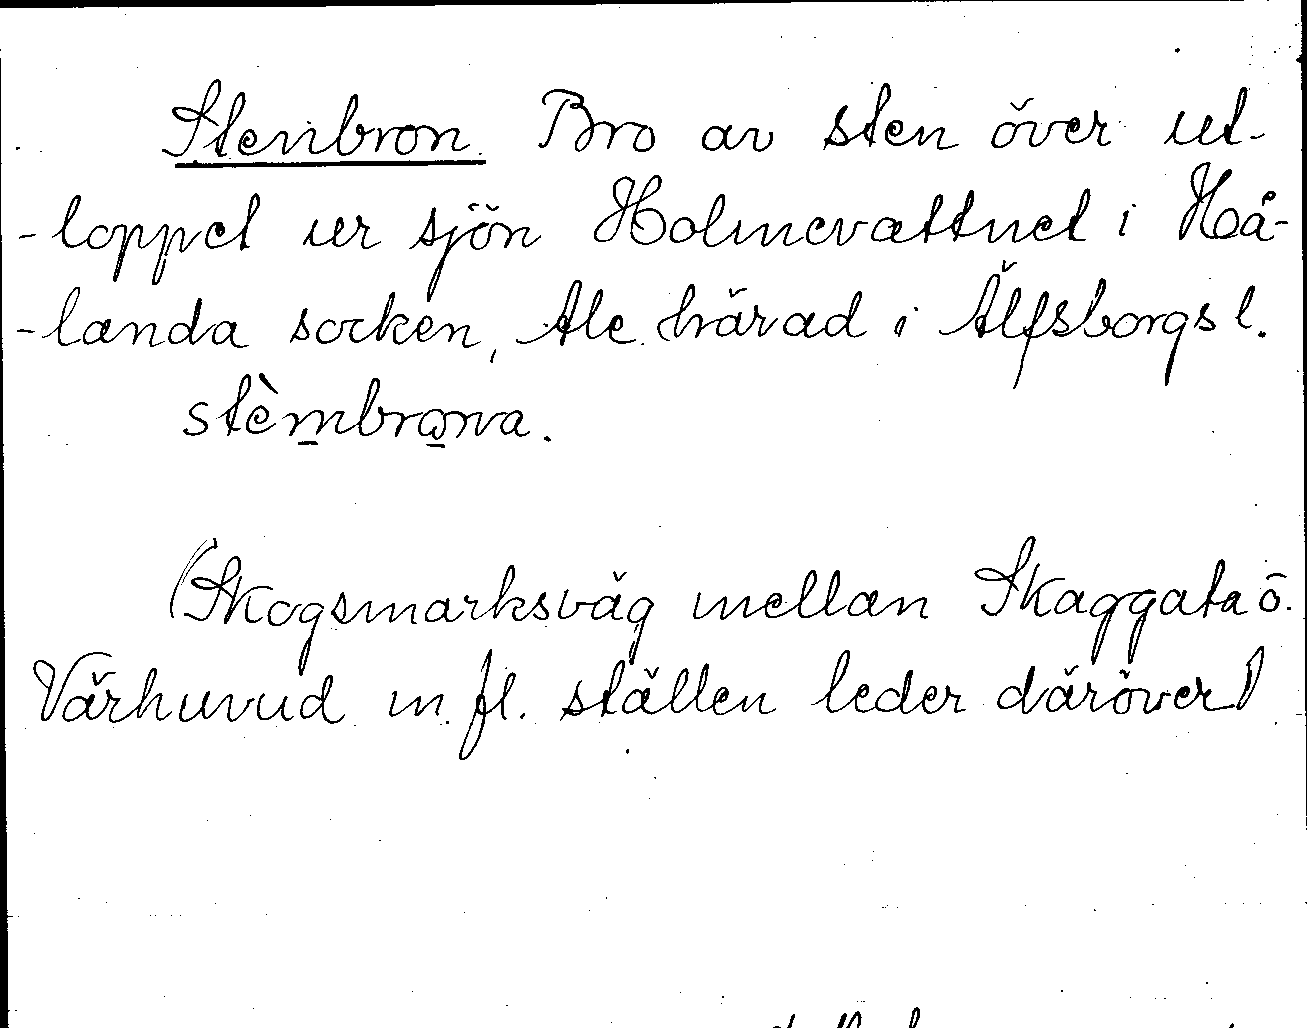 Stenbron. Bro av sten över ut-
-loppet ur sjön Holmevattnet i Hå-
-landa socken, Ale härad i Älfsborgs l.
stèm̲bro̲na.
(Skogsmarksväg mellan Skaggata ö.
Värhuvud m. fl. ställen leder däröver)